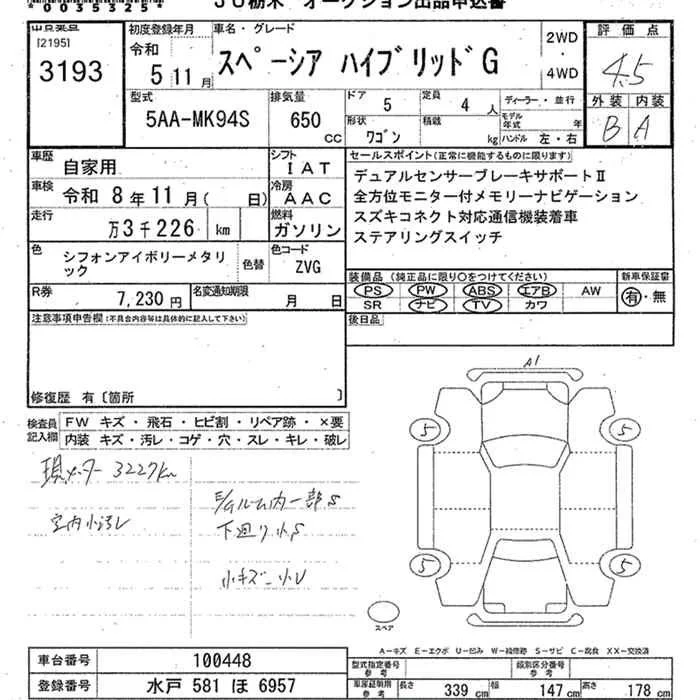 *0055325*
JU栃木 オークション出品申込書
[2195]
3193
初度登録年月
令和
5 11月
車名・グレード
スペーシア ハイブリッドG
2WD
・
4WD
評価点
4.5
外装 内装
B A
型式
5AA-MK94S
排気量
650
cc
ドア
5
定員
4 人
形状
ワゴン
積載
kg
ディーラー・並行
モデル年式 年
ハンドル 左・右
車歴
自家用
シフト
IAT
車検
令和 8年11月( 日)
冷房
AAC
走行
万3千226 km
燃料
ガソリン
色
シフォンアイボリーメタリ
ック
色替
色コード
ZVG
R券
7,230円
名変通知期限
月 日
セールスポイント(正常に機能するものに限ります)
デュアルセンサーブレーキサポートⅡ
全方位モニター付メモリーナビゲーション
スズキコネクト対応通信機装着車
ステアリングスイッチ
装備品 (純正品に限り○をつけてください)
PS PW ABS エアB AW
SR ナビ TV カワ
新車保証書
有・無
後日品
注意事項申告欄(不具合内容等は具体的に記入して下さい)
修復歴 有〔箇所 〕
検査員
記入欄
FW キズ・飛石・ヒビ割・リペア跡・×要
内装 キズ・汚レ・コゲ・穴・スレ・キレ・破レ
現メーター 3227km
室内小汚レ
ルーム内一部S
下廻り小S
小キズ 小U
A1
5 5
5 5
スペア
A-キズ E-エクボ U-凹み W-補修跡 S-サビ C-腐食 XX-交換済
車台番号
100448
登録番号
水戸 581 ほ 6957
型式指定番号
参考
類別区分番号
参考
車庫証明用
参考
長さ 339 cm
幅 147 cm
高さ 178 cm